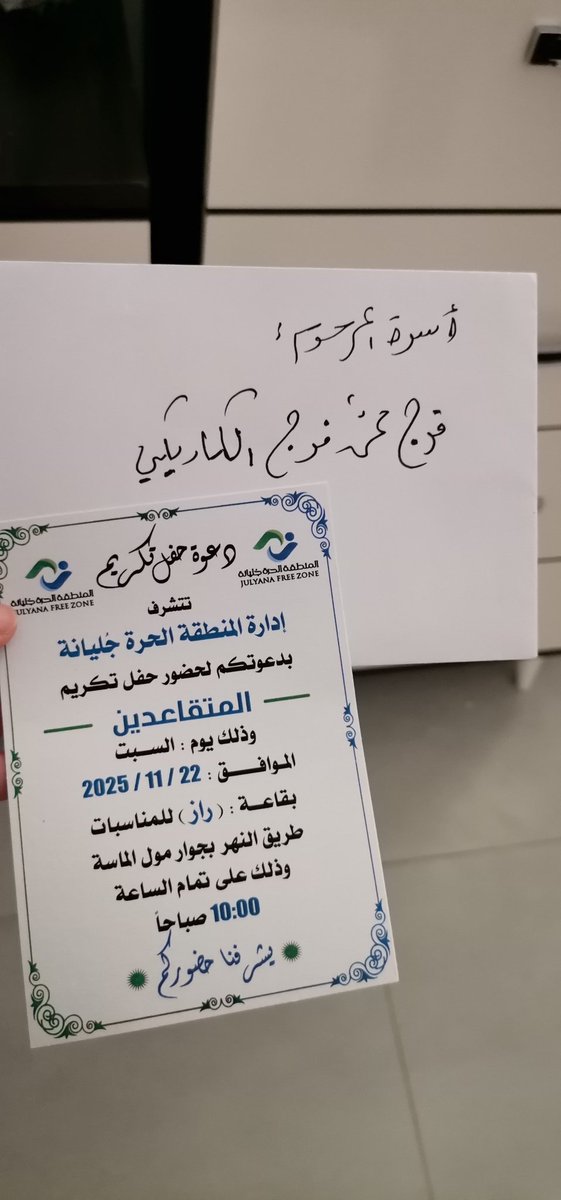 أسرة المرحوم
فرج فرج الكاديكي
دعوة حفل تكريم
المنطقة الحرة جليانة
JULYANA FREE ZONE
المنطقة الحرة جليانة
JULYANA FREE ZONE
تتشرف
إدارة المنطقة الحرة جُليانة
بدعوتكم لحضور حفل تكريم
المتقاعدين
وذلك يوم : السبت
الموافق : 22 / 11 / 2025
بقاعة : ( راز ) للمناسبات
طريق النهر بجوار مول الماسة
وذلك على تمام الساعة
10:00 صباحاً
يشرفنا حضوركم